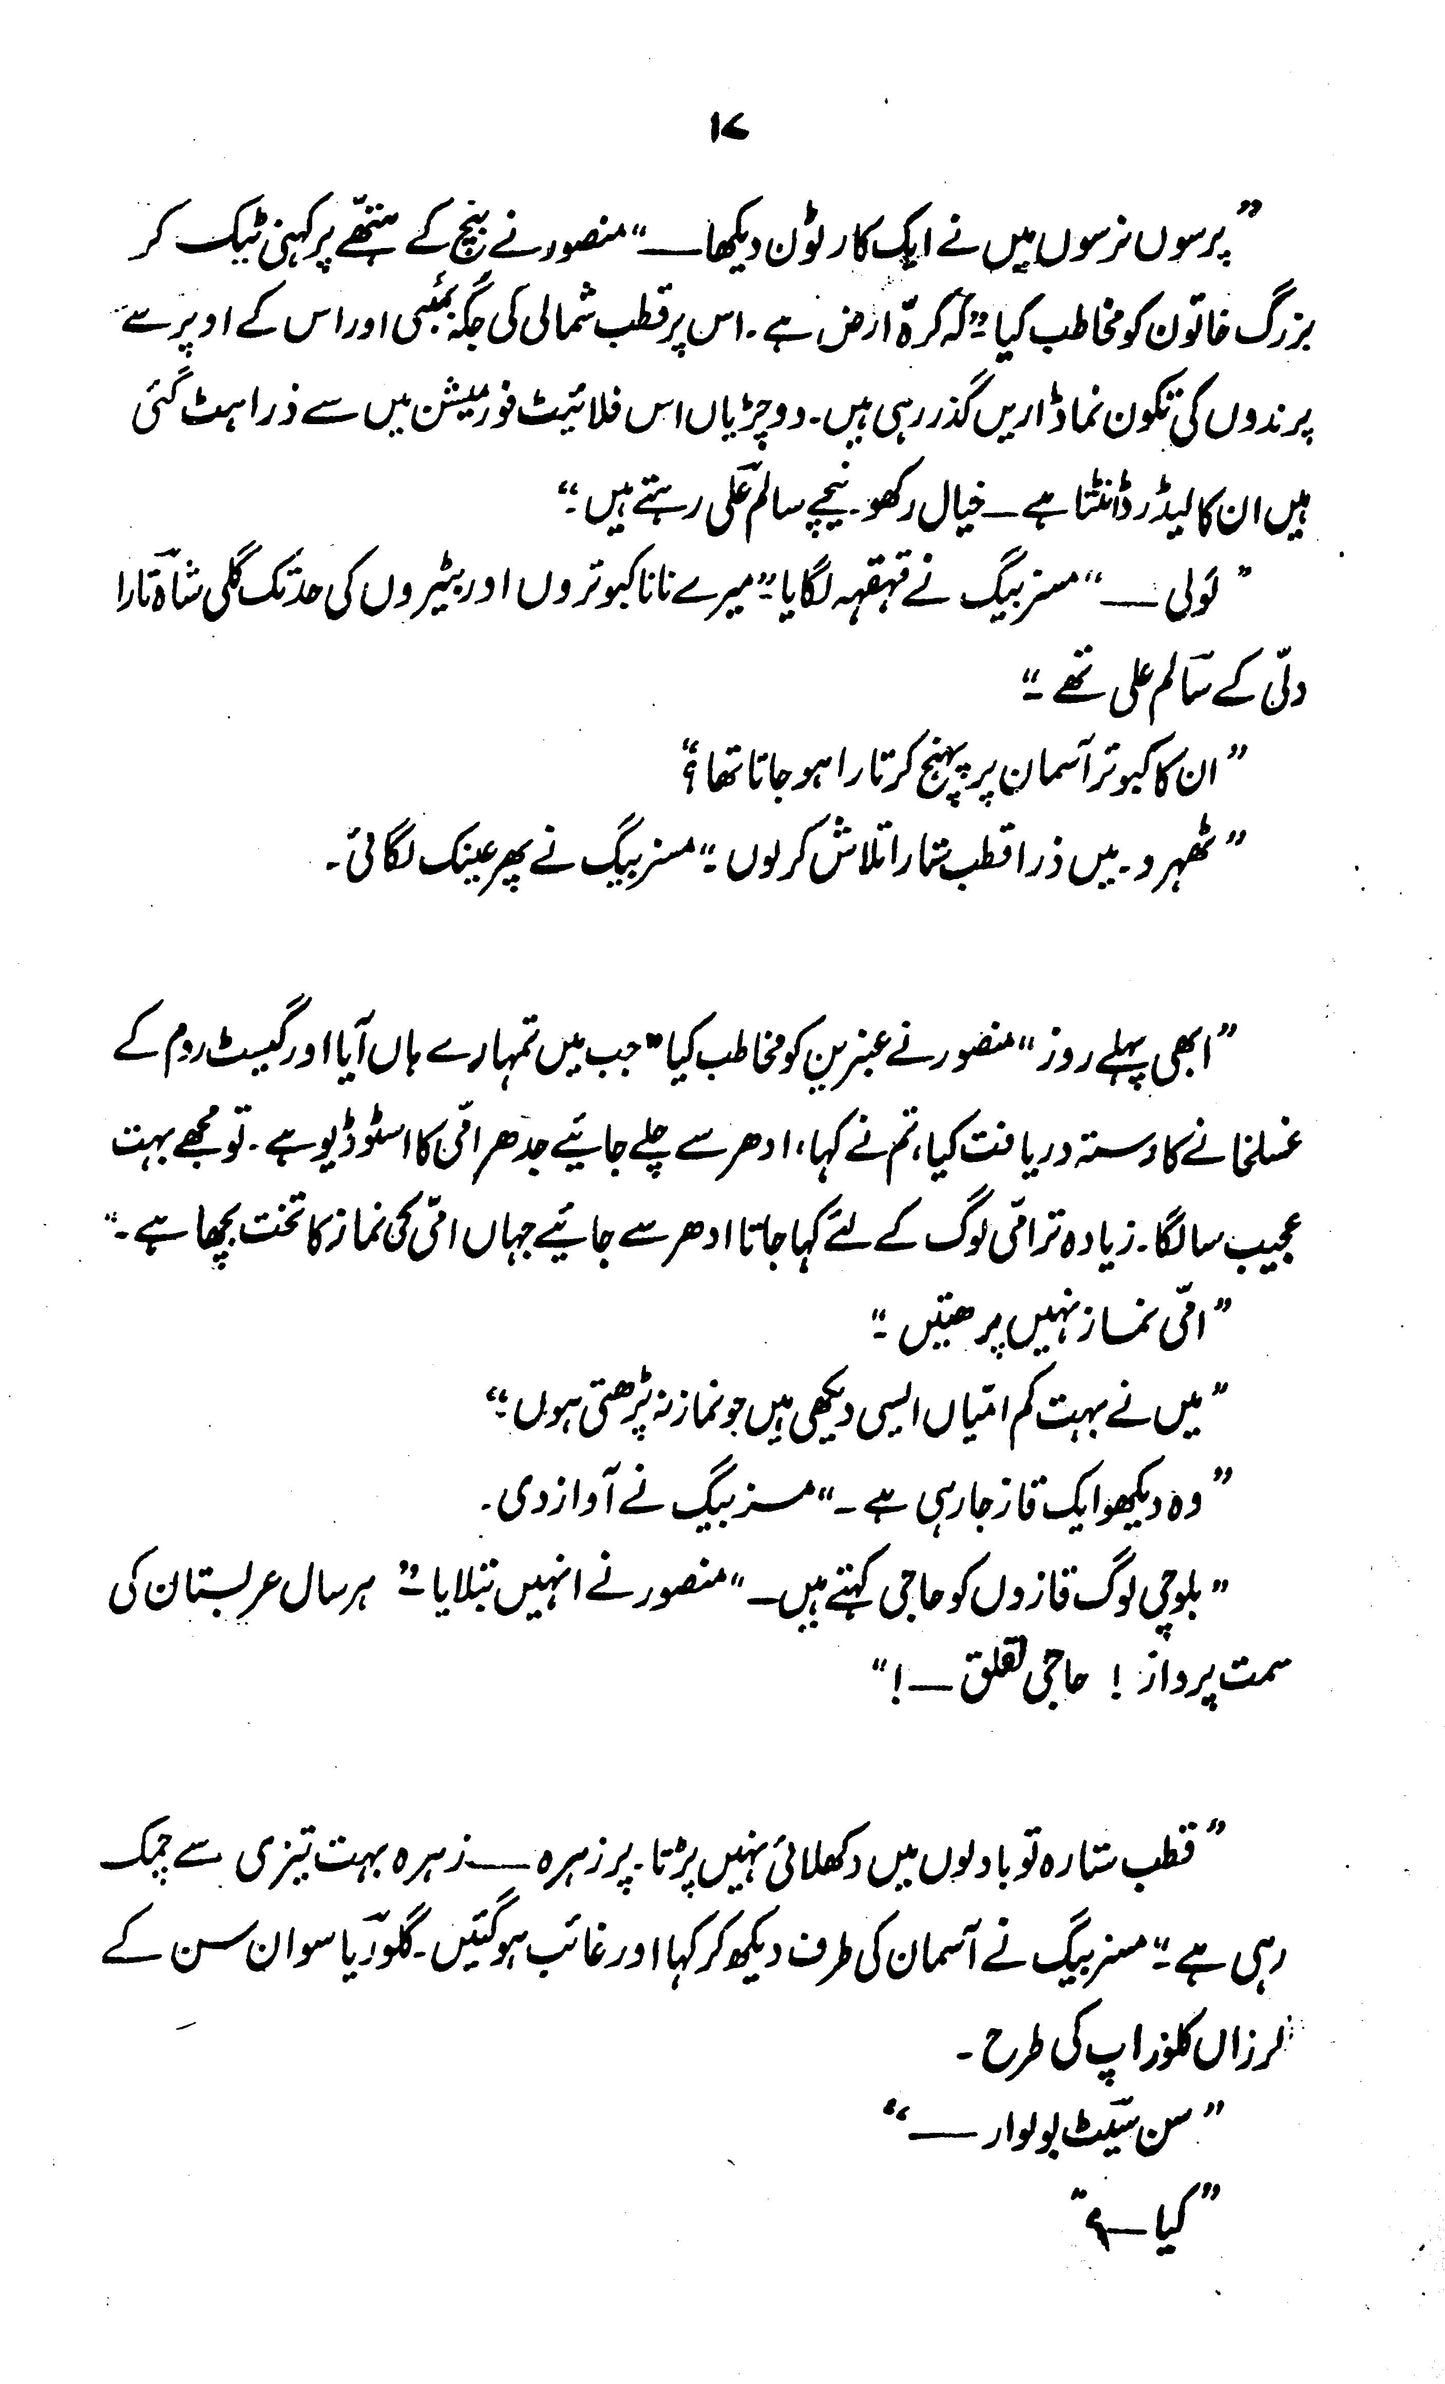 ۱۷
”پرسوں نرسوں میں نے ایک کارٹون دیکھا——“ منصور نے بنچ کے ہتھے پر کہنی ٹیک کر
بزرگ خاتون کو مخاطب کیا۔ ”کہ کرۂ ارض ہے۔ اس پر قطب شمالی کی جگہ بمبئی اور اس کے اوپر سے
پرندوں کی تکون نما ڈاریں گذر رہی ہیں۔ دو چڑیاں اس فلائیٹ فورمیشن میں سے ذرا ہٹ گئی
ہیں ان کا لیڈر ڈانٹتا ہے — خیال رکھو۔ نیچے سالم علی رہتے ہیں۔“
”لَولی ——“ مسز بیگ نے قہقہہ لگایا۔ ”میرے نانا کبوتروں اور بٹیروں کی حد تک گلی شاہ تارا
دلّی کے سالم علی تھے۔“
”ان کا کبوتر آسمان پر پہنچ کر تارا ہو جاتا تھا؟“
”ٹھہرو۔ میں ذرا قطب ستارا تلاش کر لوں۔“ مسز بیگ نے پھر عینک لگائی۔
”ابھی پہلے روز“ منصور نے عنبرین کو مخاطب کیا ”جب میں تمہارے ہاں آیا اور گیسٹ روم کے
غسلخانے کا رستہ دریافت کیا، تم نے کہا، ادھر سے چلے جائیے جدھر امّی کا اسٹوڈیو ہے۔ تو مجھے بہت
عجیب سا لگا۔ زیادہ تر امّی لوگ کے لئے کہا جاتا ادھر سے جائیے جہاں امّی کی نماز کا تخت بچھا ہے۔“
”امّی نماز نہیں پرھتیں۔“
”میں نے بہت کم امّیاں ایسی دیکھی ہیں جو نماز نہ پڑھتی ہوں۔“
”وہ دیکھو ایک قاز جا رہی ہے۔“ مسز بیگ نے آواز دی۔
”بلوچی لوگ قازوں کو حاجی کہتے ہیں۔“ منصور نے انہیں بتلایا۔ ”ہر سال عربستان کی
سمت پرواز! حاجی لقلق —!“
”قطب ستارہ تو بادلوں میں دکھلائی نہیں پڑتا۔ پر زہرہ —— زہرہ بہت تیزی سے چمک
رہی ہے۔“ مسز بیگ نے آسمان کی طرف دیکھ کر کہا اور غائب ہو گئیں۔ گلوریا سوان سن کے
لرزاں کلوز اپ کی طرح۔
”سن سیٹ بولوار ——“
”کیا —؟“